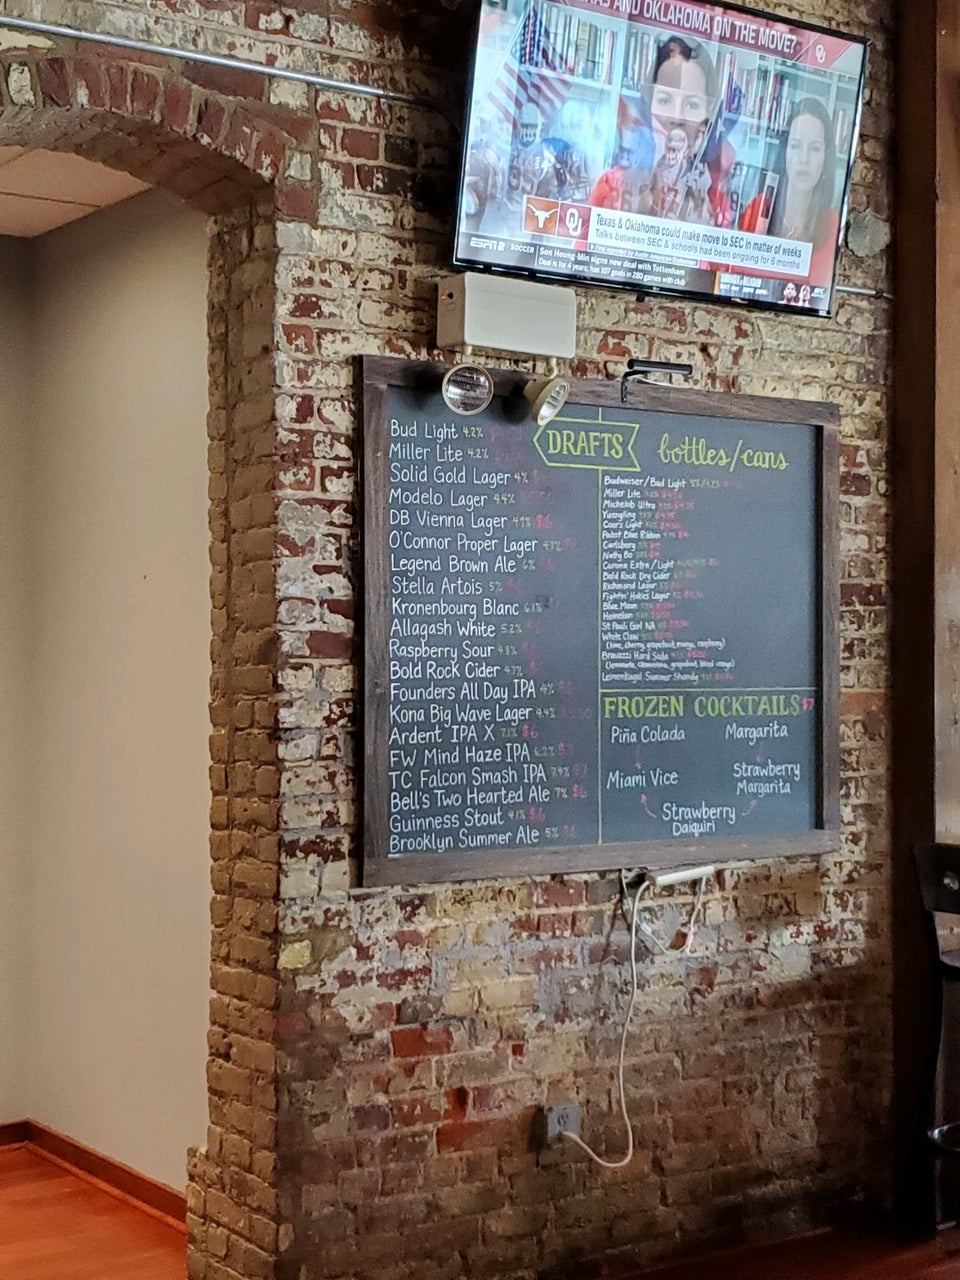 AS AND OKLAHOMA ON THE MOVE?
OU
OU
Texas & Oklahoma could make move to SEC in matter of weeks
Talks between SEC & schools had been ongoing for 6 months
First reported by Austin American-Statesman
ESPN2 SOCCER
Son Heung-Min signs new deal with Tottenham
Deal is for 4 years; has 107 goals in 280 games with club
DRAFTS
Bud Light 4.2%
Miller Lite 4.2%
Solid Gold Lager 4%
Modelo Lager 4.4%
DB Vienna Lager 4.9% $6
O'Connor Proper Lager 4.7%
Legend Brown Ale 6%
Stella Artois 5%
Kronenbourg Blanc 6.1%
Allagash White 5.2%
Raspberry Sour 4.8%
Bold Rock Cider 4.7%
Founders All Day IPA 4%
Kona Big Wave Lager 4.4%
Ardent IPA X 7.1% $6
FW Mind Haze IPA 6.2%
TC Falcon Smash IPA 7.4%
Bell's Two Hearted Ale 7% $6
Guinness Stout 4.1% $6
Brooklyn Summer Ale 5%
bottles/cans
Budweiser/Bud Light
Miller Lite
Michelob Ultra
Yuengling
Coors Light
Pabst Blue Ribbon
Carlsberg
Natty Bo
Corona Extra/Light
Bold Rock Dry Cider
Richmond Lager
Fightin' Hokies Lager
Blue Moon
Heineken
St Pauli Girl NA
White Claw
(lime, cherry, grapefruit, mango, raspberry)
Hard Soda
Leinenkugel Summer Shandy
FROZEN COCKTAILS $7
Piña Colada
Margarita
Miami Vice
Strawberry
Margarita
Strawberry
Daiquiri